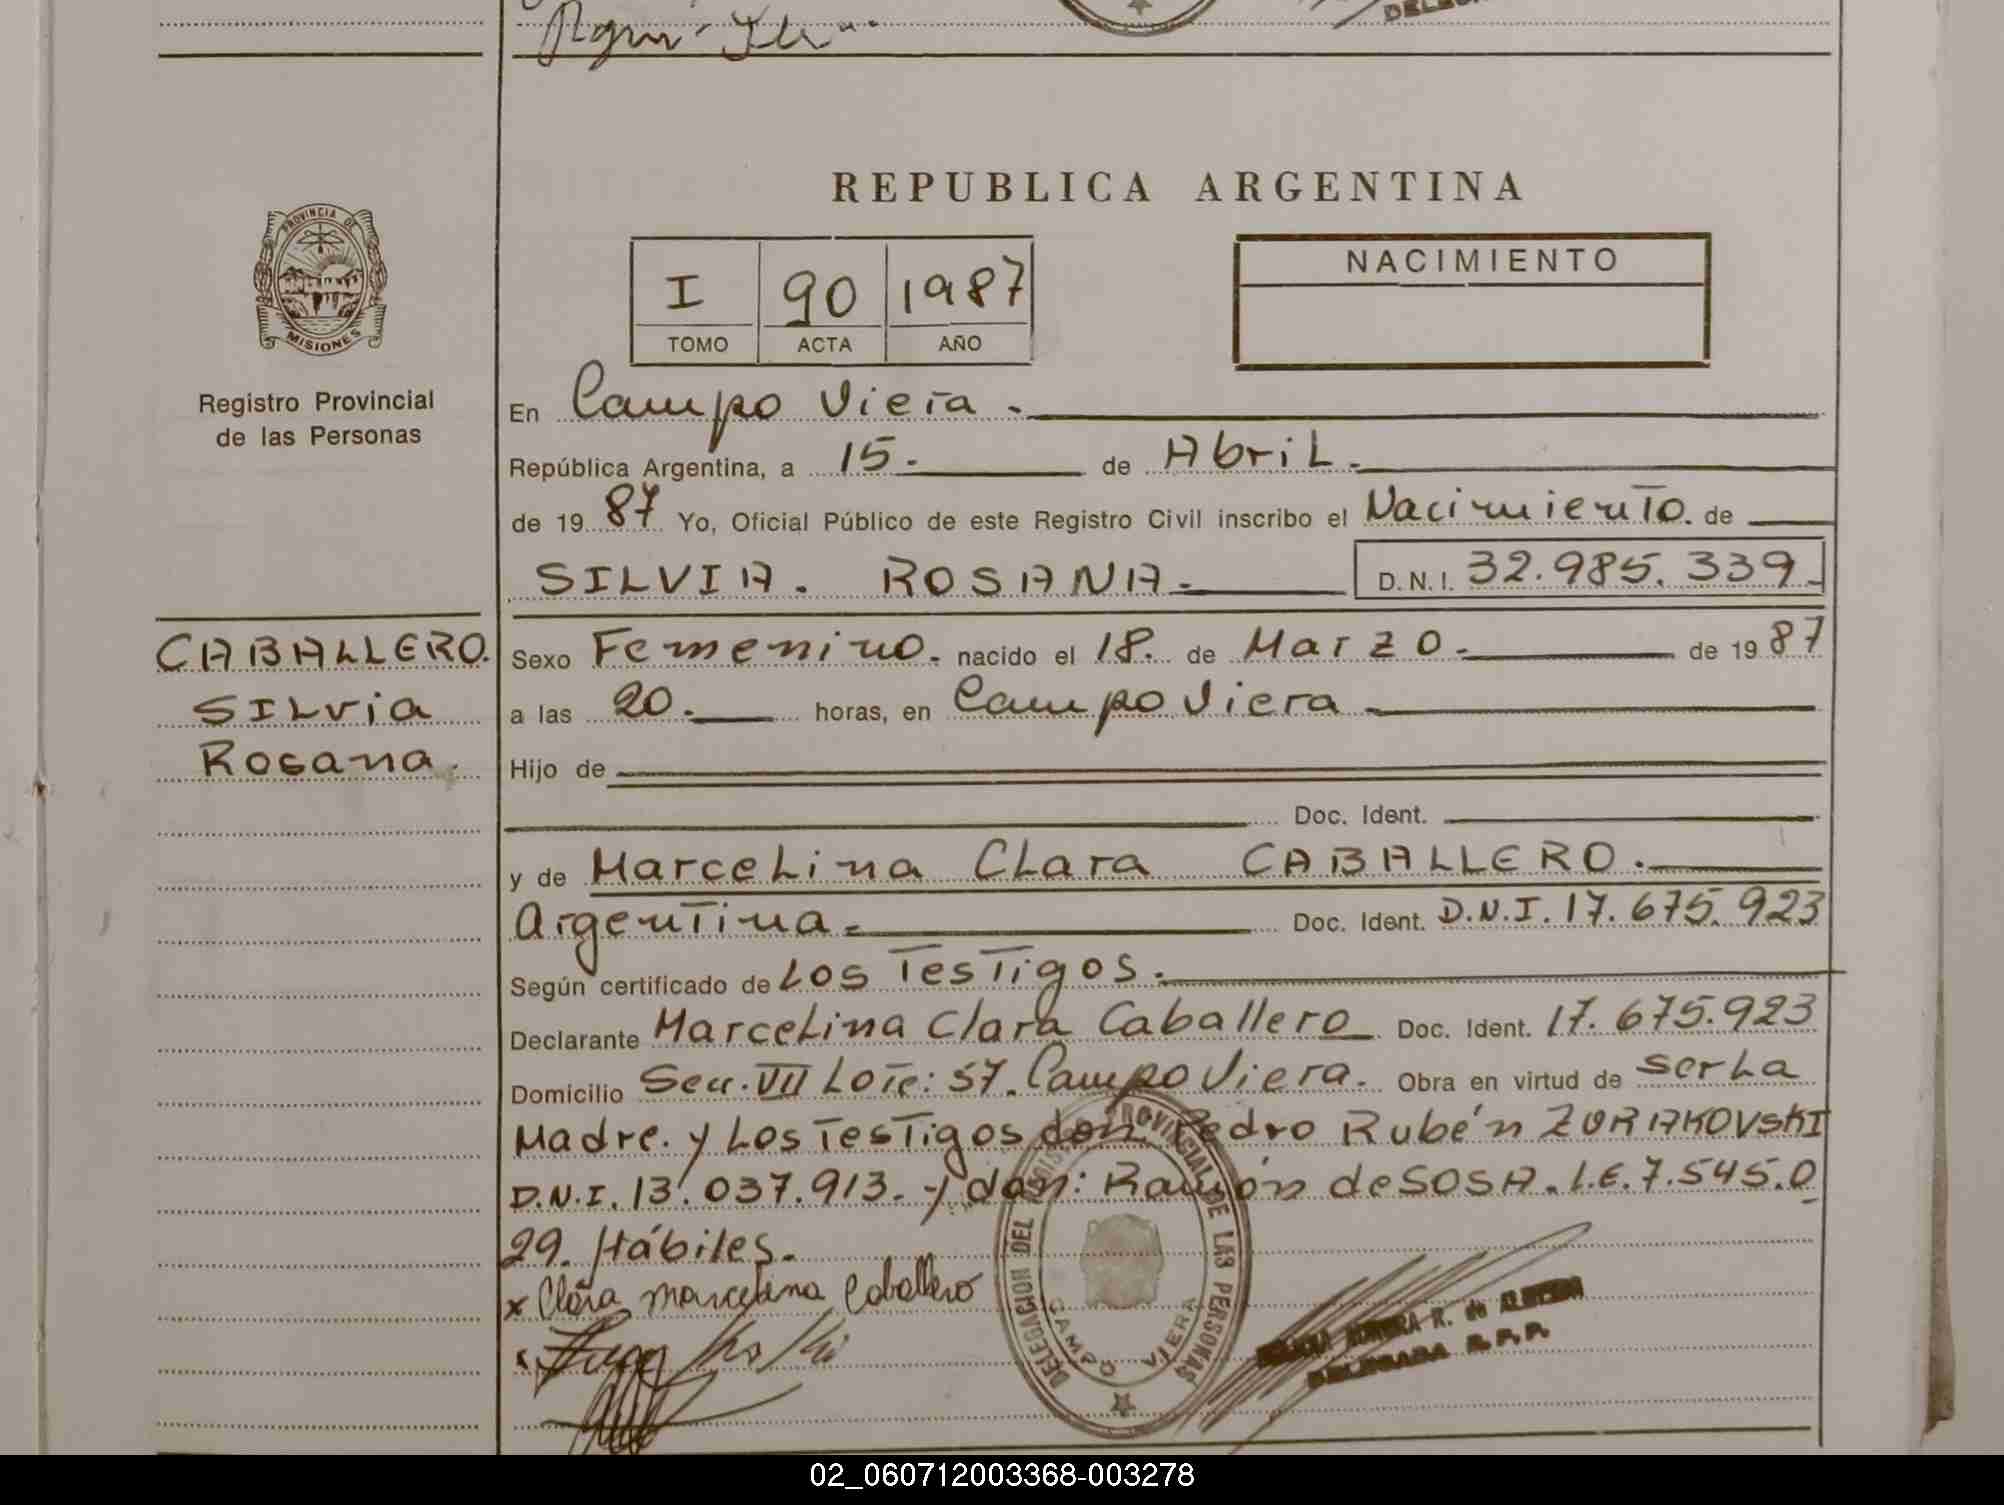 REPUBLICA ARGENTINA
PROVINCIA DE
MISIONES
Registro Provincial
de las Personas
I 90 1987
TOMO ACTA AÑO
NACIMIENTO
En Campo Viera.
República Argentina, a 15. de Abril.
de 19 87 Yo, Oficial Público de este Registro Civil inscribo el Nacimiento. de
SILVIA. ROSANA. D.N.I. 32.985.339.
CABALLERO.
Silvia
Rosana.
Sexo Femenino. nacido el 18. de Marzo. de 19 87
a las 20. horas, en Campo Viera
Hijo de
Doc. Ident.
y de Marcelina Clara CABALLERO.
Argentina. Doc. Ident. D.N.I. 17.675.923
Según certificado de Los Testigos.
Declarante Marcelina Clara Caballero Doc. Ident. 17.675.923
Domicilio Secc. VII Lote: 57. Campo Viera. Obra en virtud de ser La
Madre. y Los Testigos don Pedro Rubén ZURAKOVSKI
D.N.I. 13.037.913. y don: Ramón de SOSA. L.E. 7.545.0
29. Hábiles.
x Clara Marcelina Caballero
x
DELEGACION DEL REGISTRO PROVINCIAL DE LAS PERSONAS
CAMPO VIERA
R. de
DELEGADA R. P. P.
02_060712003368-003278